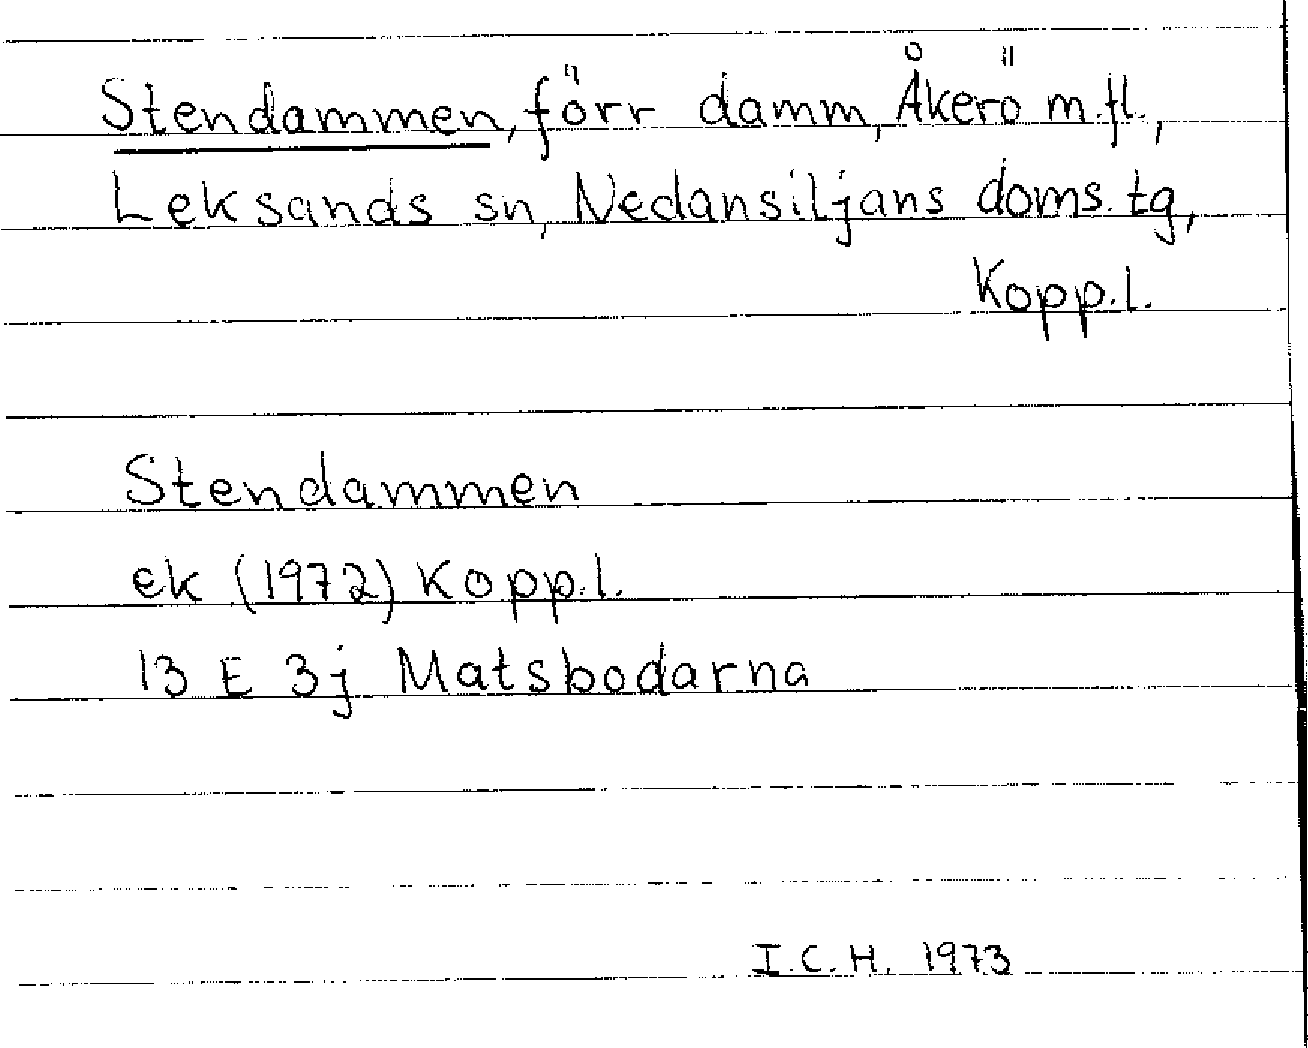 Stendammen, förr damm, Åkerö m.fl.,
Leksands sn, Nedansiljans doms. tg,
Kopp.l.
Stendammen
ek (1972) Kopp.l.
13 E 3j Matsbodarna
I.C.H. 1973